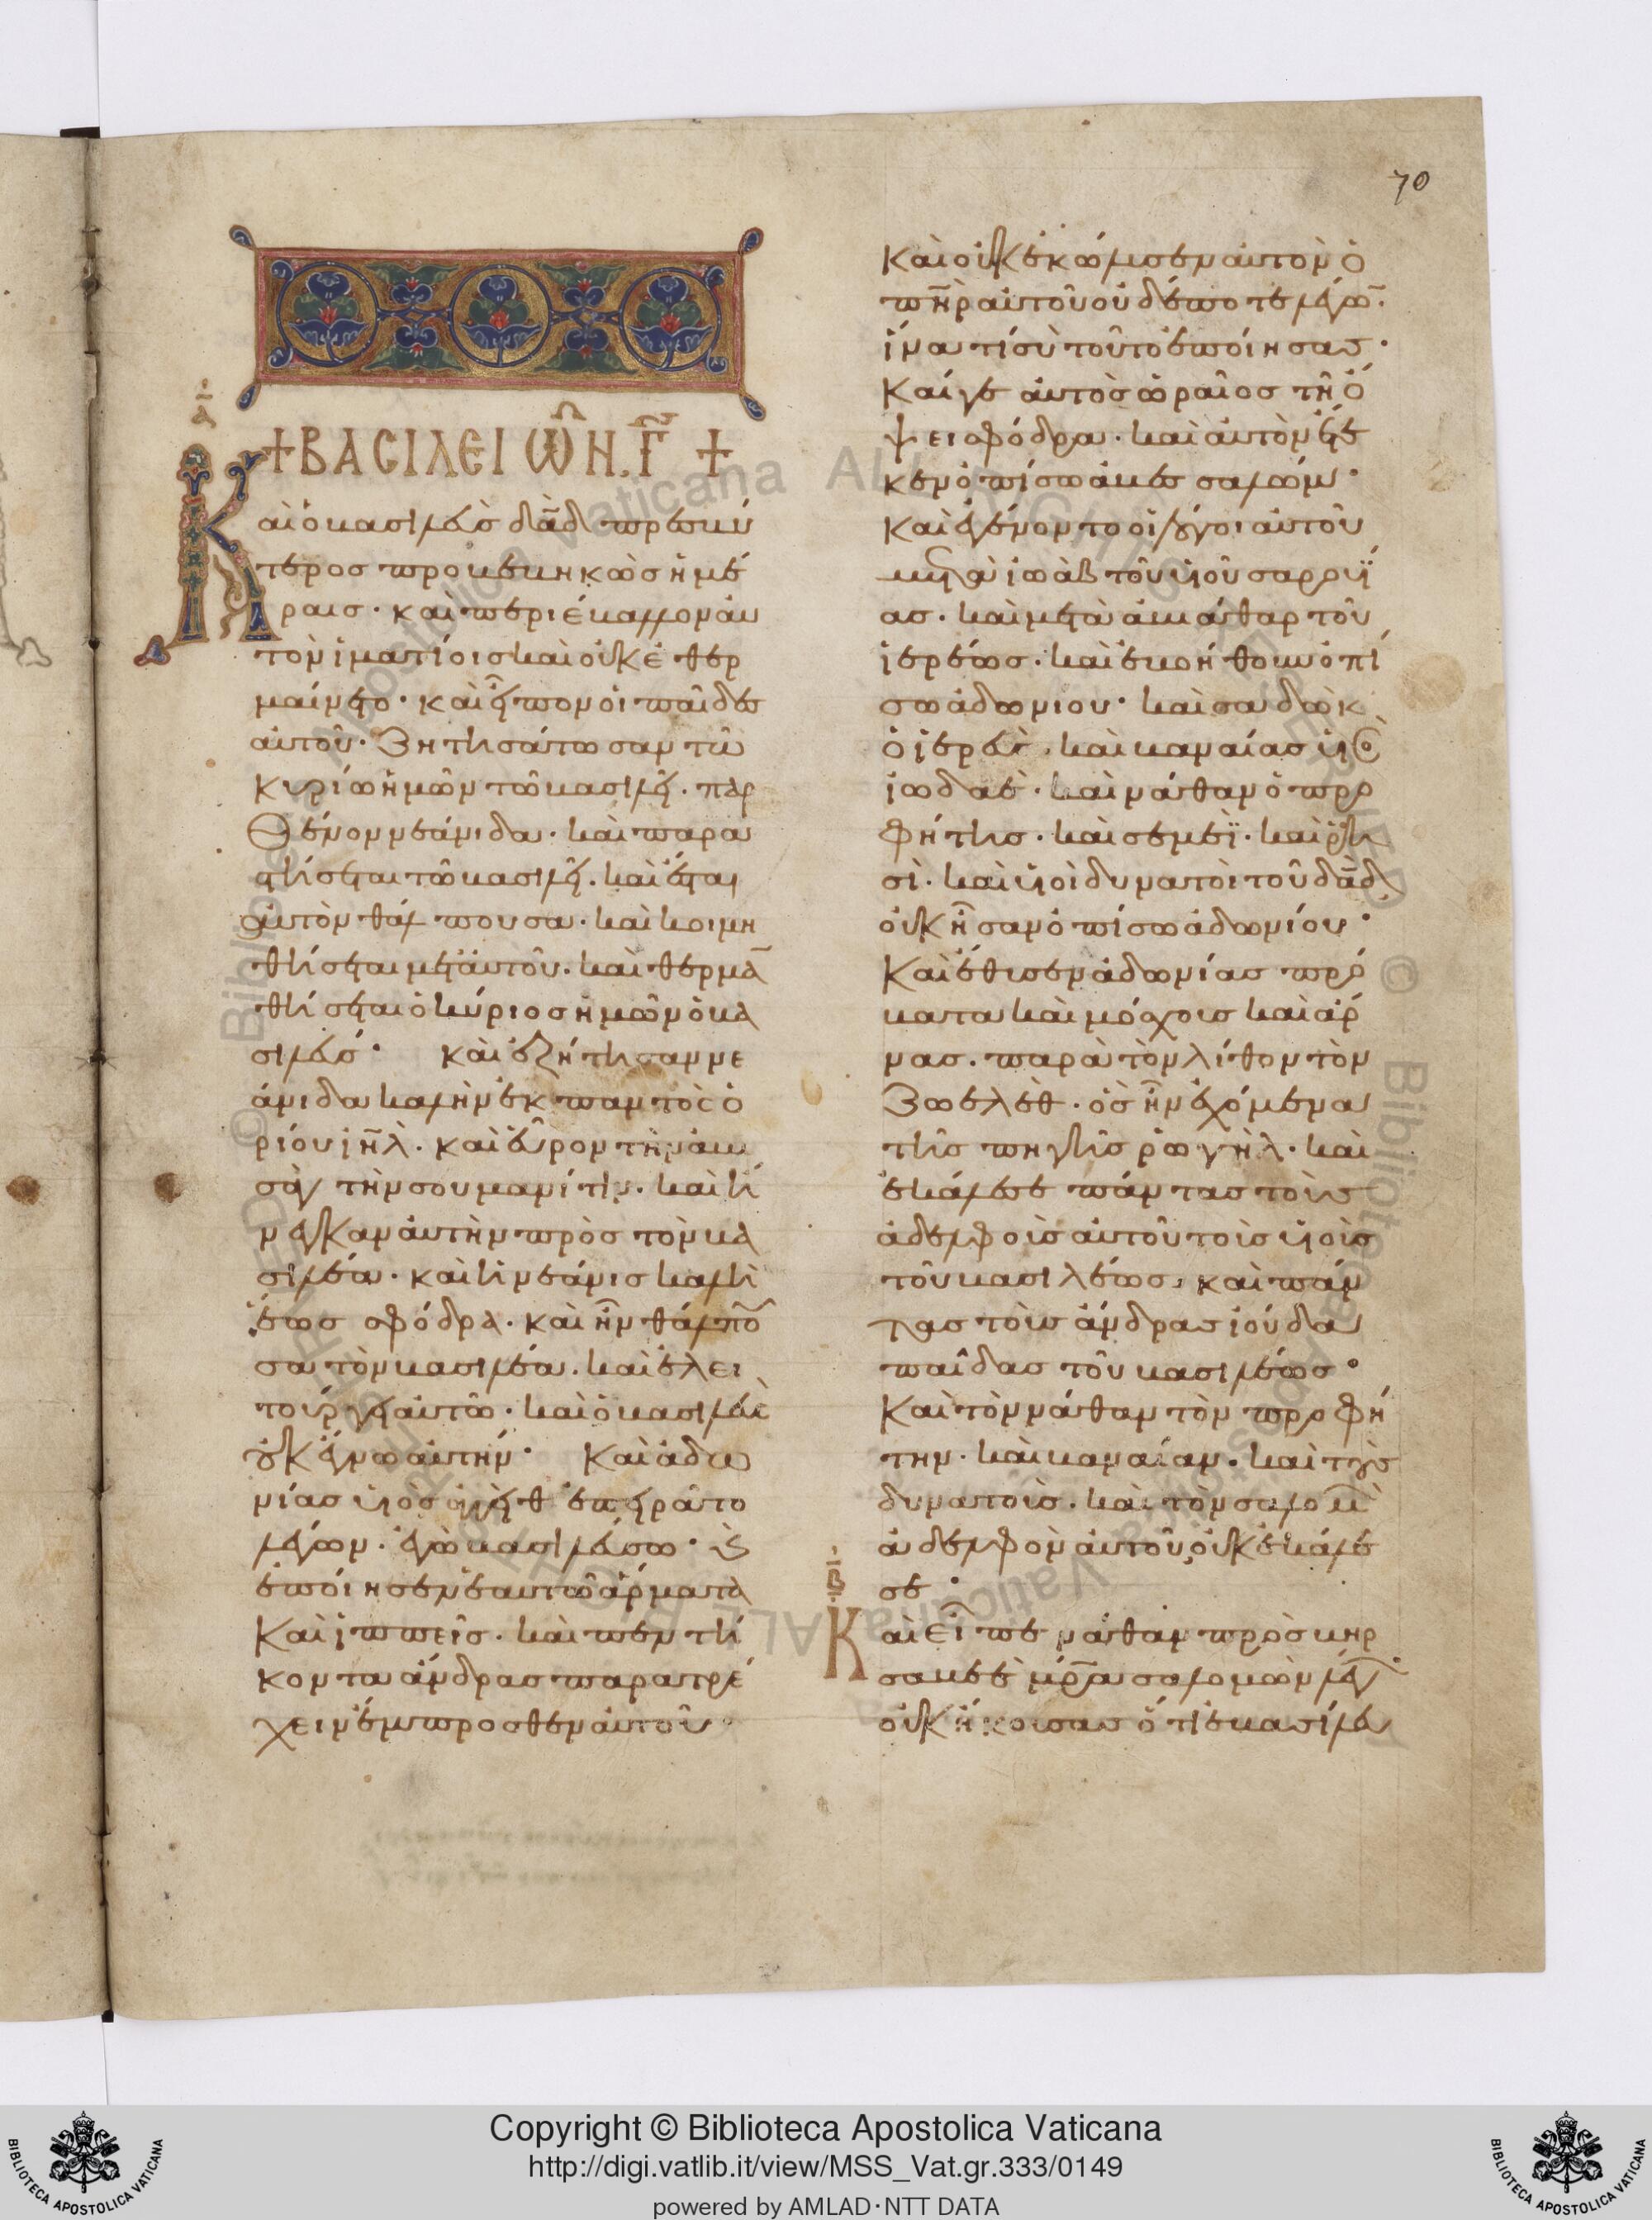 70
α
+ ΒΑΣΙΛΕΙΩΝ Γ +
Καὶ ὁ βασιλεὺς δᾱδ πρεσβύ
τερος προβεβηκὼς ἡμέ
ραις· καὶ περιέβαλλον αὐ
τὸν ἱματίοις καὶ οὐκ ἐθερ
μαίνετο· καὶ εἶπον οἱ παῖδες
αὐτοῦ· Ζητησάτωσαν τῶ
κυρίω ἡμῶν τῶ βασιλεῖ· παρ
θένον νεάνιδα· καὶ παρα
στήσεται τῶ βασιλεῖ· καὶ ἔσται
αὐτὸν θάλπουσα· καὶ κοιμη
θήσεται μετ' αὐτοῦ· καὶ θερμᾱ
θήσεται ὁ κύριος ἡμῶν ὁ βα
σιλεύς· καὶ ἐζήτησαν νε
άνιδα καλὴν ἐκ παντὸς ὁ
ρίου ιη̄λ· καὶ εὗρον τὴν ἀβι
σὰγ τὴν σουμανίτην· καὶ ἤ
νεγκαν αὐτὴν πρὸς τὸν βα
σιλέα· καὶ ἡ νεάνις καλὴ
ἕως σφόδρα· καὶ ἦν θάλπου
σα τὸν βασιλέα· καὶ ἐλει
τούργει αὐτῶ· καὶ ὁ βασιλεὺς
οὐκ ἔγνω αὐτήν· Καὶ ἀδω
νίας υἱὸς ἀγγεὶθ ἐπῃρᾶτο
λέγων· ἐγὼ βασιλεύσω· καὶ
ἐποίησεν ἑαυτῶ ἅρματα
καὶ ἱππεῖς· καὶ πεντή
κοντα ἄνδρας παρατρέ
χειν ἔμπροσθεν αὐτοῦ·
Καὶ οὐκ ἐκώλυσεν αὐτὸν ὁ
πη̄ρ αὐτοῦ οὐδέποτε λέγω̄·
ἵνα τί σὺ τοῦτο ἐποίησας·
Καί γε αὐτὸς ὡραῖος τῆ ὄ
ψει σφόδρα· καὶ αὐτὸν ἔτε
κεν ὀπίσω ἀβεσσαλώμ·
Καὶ ἐγένοντο οἱ λόγοι αὐτοῦ
μετὰ ἰωὰβ τοῦ υἱοῦ σαρουΐ
ας· καὶ μετὰ ἀβιάθαρ τοῦ
ἱερέως· καὶ ἐβοήθουν ὀπί
σω ἀδωνιου· καὶ σαδὼκ
ὁ ἱερεὺς· καὶ βαναίας υἱὸς
ἰωδαὲ· καὶ νάθαν ὁ προ
φήτης· καὶ σεμεῒ· καὶ ῥη
σὶ· καὶ υἱοὶ δυνατοὶ τοῦ δᾱδ
οὐκ ἦσαν ὀπίσω ἀδωνίου·
Καὶ ἔθυσεν ἀδωνίας πρό
βατα καὶ μόσχους καὶ ἄρ
νας· παρὰ τὸν λίθον τὸν
Ζωελὲθ· ὃς ἦν ἐχόμενα
τῆς πηγῆς ῥωγὴλ· καὶ
ἐκάλεσε πάντας τοὺς
ἀδελφοὺς αὐτοῦ τοὺς υἱοὺς
τοῦ βασιλέως, καὶ πάν
τας τοὺς ἄνδρας ἰούδα
παῖδας τοῦ βασιλέως·
Καὶ τὸν νάθαν τὸν προφή
την· καὶ βαναίαν· καὶ τοὺς
δυνατοὺς· καὶ τὸν σαλομῶν
ἀδελφὸν αὐτοῦ, οὐκ ἐκάλε
σε·
β
Καὶ εἶπε νάθαν πρὸς βηρ
σαβεὲ μρ̄α σαλομῶν λέγων·
οὐκ ἤκουσας ὅτι ἐβασίλευ
Copyright © Biblioteca Apostolica Vaticana
http://digi.vatlib.it/view/MSS_Vat.gr.333/0149
powered by AMLAD·NTT DATA
BIBLIOTECA APOSTOLICA VATICANA
BIBLIOTECA APOSTOLICA VATICANA